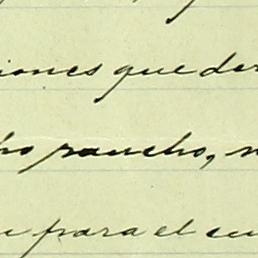 iones que der
ho rancho, n
para el cu